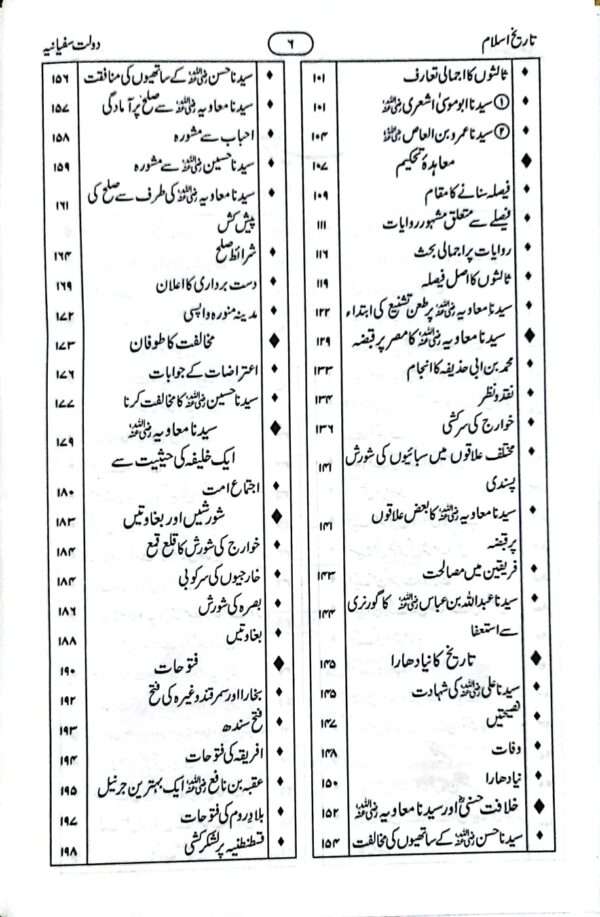 تاریخ اسلام
۶
دولت سفیانیہ
ثالثوں کا اجمالی تعارف ۱۰۱
① سیدنا ابو موسیٰ اشعری رضی اللہ عنہ ۱۰۱
② سیدنا عمرو بن العاص رضی اللہ عنہ ۱۰۴
معاہدۂ تحکیم ۱۰۷
فیصلہ سنانے کا مقام ۱۰۹
فیصلے سے متعلق مشہور روایات ۱۱۱
روایات پر اجمالی بحث ۱۱۶
ثالثوں کا اصل فیصلہ ۱۱۹
سیدنا معاویہ رضی اللہ عنہ پر طعن تشنیع کی ابتداء ۱۲۲
سیدنا معاویہ رضی اللہ عنہ کا مصر پر قبضہ ۱۲۹
محمد بن ابی حذیفہ کا انجام ۱۳۳
نقد و نظر ۱۳۴
خوارج کی سرکشی ۱۳۶
مختلف علاقوں میں سبائیوں کی شورش ۱۴۱
پسندی
سیدنا معاویہ رضی اللہ عنہ کا بعض علاقوں ۱۴۱
پر قبضہ
فریقین میں مصالحت ۱۴۳
سیدنا عبداللہ بن عباس رضی اللہ عنہ کا گورنری ۱۴۴
سے استعفا
تاریخ کا نیا دھارا ۱۴۵
سیدنا علی رضی اللہ عنہ کی شہادت ۱۴۵
نصیحتیں ۱۴۷
وفات ۱۴۸
نیا دھارا ۱۵۰
خلافت حسنؓ اور سیدنا معاویہ رضی اللہ عنہ ۱۵۲
سیدنا حسن رضی اللہ عنہ کے ساتھیوں کی مخالفت ۱۵۴
سیدنا حسن رضی اللہ عنہ کے ساتھیوں کی منافقت ۱۵۶
سیدنا معاویہ رضی اللہ عنہ سے صلح پر آمادگی ۱۵۷
احباب سے مشورہ ۱۵۸
سیدنا حسین رضی اللہ عنہ سے مشورہ ۱۵۹
سیدنا معاویہ رضی اللہ عنہ کی طرف سے صلح کی ۱۶۱
پیش کش
شرائط صلح ۱۶۴
دست برداری کا اعلان ۱۶۹
مدینہ منورہ واپسی ۱۷۲
مخالفت کا طوفان ۱۷۳
اعتراضات کے جوابات ۱۷۶
سیدنا حسین رضی اللہ عنہ کا مخالفت کرنا ۱۷۷
سیدنا معاویہ رضی اللہ عنہ ۱۷۹
ایک خلیفہ کی حیثیت سے
اجتماع امت ۱۸۰
شورشیں اور بغاوتیں ۱۸۳
خوارج کی شورش کا قلع قمع ۱۸۴
خارجیوں کی سرکوبی ۱۸۴
بصرہ کی شورش ۱۸۶
بغاوتیں ۱۸۸
فتوحات ۱۹۰
بخارا اور سمرقند وغیرہ کی فتح ۱۹۲
فتح سندھ ۱۹۳
افریقہ کی فتوحات ۱۹۴
عقبہ بن نافع رضی اللہ عنہ ایک بہترین جرنیل ۱۹۵
بلاد روم کی فتوحات ۱۹۷
قسطنطنیہ پر لشکر کشی ۱۹۸